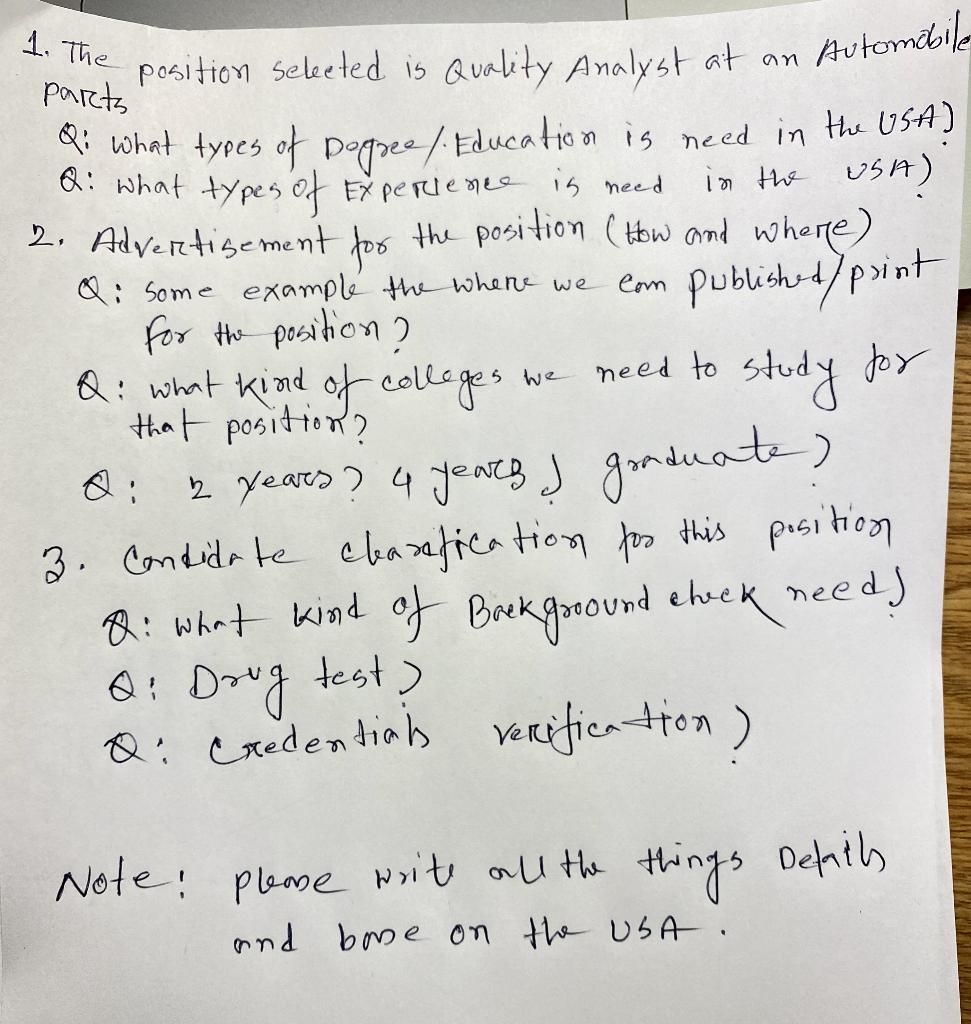 1. The position selected is Quality Analyst at an Automobile
parts
Q: What types of Degree/.Education is need in the USA?
Q: What types of Experience is need in the USA?
2. Advertisement for the position (How and where)
Q: Some example the where we can published/print
for the position?
Q: what kind of colleges we need to study for
that position?
Q: 2 Years? 4 years? graduate?
3. Candidate clarification for this position
Q: what kind of Background check need?
Q: Drug test?
Q: Credentials verification?
Note: please write all the things Details
and base on the USA.